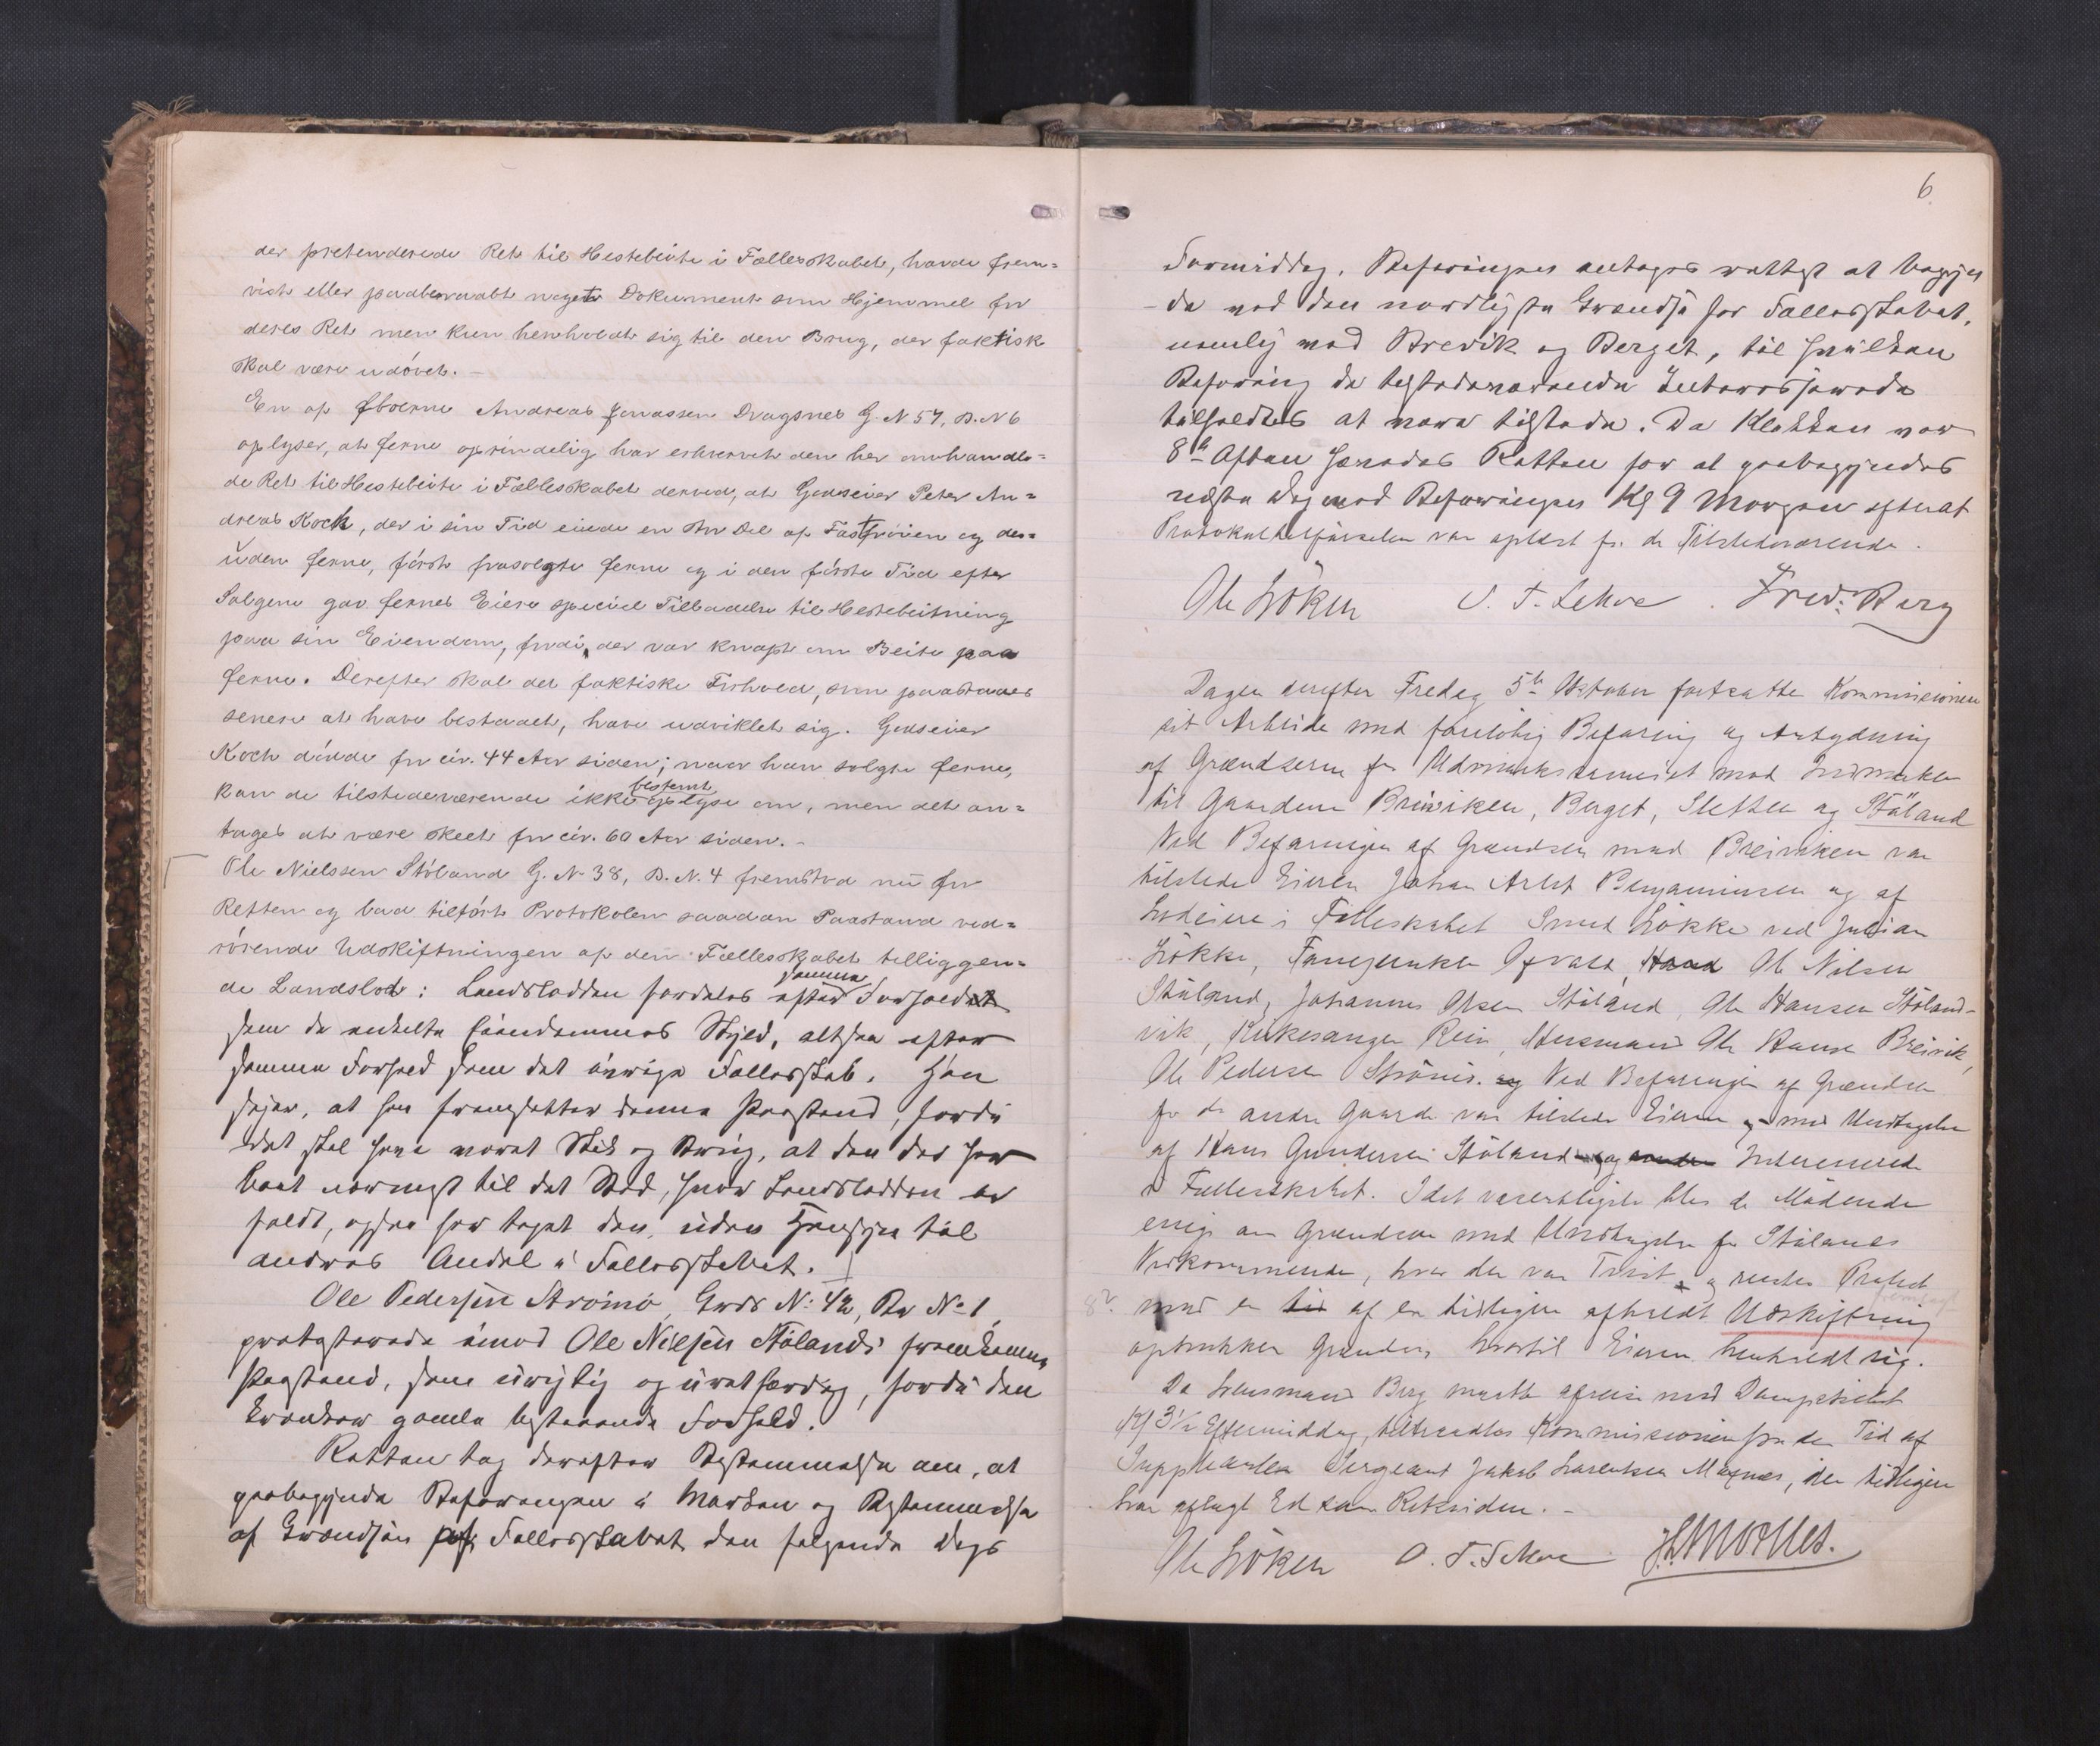 der pretenderede Ret til Hestebeite i Fællesskabet, havde frem=
vist eller paaberaabt noget Dokument som Hjemmel for
deres Ret men kun henholdt sig til den Brug, der faktisk
skal være udövet. -
En af Øboerne Andreas Jonassen Dragsnes G. N 57, B. N 6
oplyser, at Øerne oprindelig har erhvervet den her omhandle=
de Ret til Hestebeite i Fællesskabet derved, at Godseier Peter An=
dreas Koch, der i sin Tid eiede en stor Del af Fastøien og des=
uden Øerne, först frasolgte Øerne og i den förste Tid efter
Salgene gav Øernes Eiere speciel Tilladelse til Hestebeitning
paa sin Eiendom, fordi der var knapt om Beite paa
Øerne. Derefter skal det faktiske Forhold, som paastaaes
senere at have bestaaet, have udviklet sig. Godseier
Koch döde for cir. 44 Aar siden; naar han solgte Øerne,
kan de tilstedeværende ikke bestemt oplyse om, men det an=
tages at være skeet for cir. 60 Aar siden. -
Ole Nielssen Stöland G. N 38, B. N. 4 fremstod nu for
Retten og bad tilfört Protokolen saadan Paastand ved=
rörende Udskiftningen af den Fællesskabet tilliggen=
de Landslod: Landslodden fordeles efter samme Forhold
som de enkelte Eiendommes Skyld, altsaa efter
samme Forhold som det övrige Fællesskab. Han
siger, at han fremsætter denne Paastand, fordi
det skal have været Skik og Brug, at den der har
boet nærmest til det Sted, hvor Landslodden er
faldt, ogsaa har taget den, uden Hensyn til
andres Andel i Fællesskabet.
Ole Pedersen Strömö, Grds N: 42, Br No 1
protesterede imod Ole Nilsen Stölands fremkomne
Paastand, som urigtig og uretfærdig, fordi den
krænker gamle bestaaende Forhold.
Retten tog derefter Bestemmelse om, at
paabegynde Befaringen i Marken og Bestemmelse
af Grændsen af Fællesskabet den følgende Dags
6.
Formiddag. Befaringen antages rettest at begyn
de ved den nordligste Grændse for Fællesskabet,
nemlig mod Brevik og Berget, til hvilken
Befaring de tilstedeværende Interesserede
tilholdtes at være tilstede. Da Klokken var
8 te Aften hævedes Retten for at paabegyndes
næste Dag med Befaringen Kl 9 Morgen efterat
Protokoltilförselen var oplæst for de Tilstedeværende.
Ole Löken O. T. Sehve. Fred: Berg
Dagen derefter Fredag 5te Oktober fortsatte Kommissionen
sit Arbeide med forelöbig Befaring og Antydning
af Grændserne for Udmarks mod Indmarken
til Gaardene Breiviken, Berget, Sletten og Stöland
Ved Befaringen af Grændsen mod Breiviken var
tilstede Eieren Johan Arlst Benjaminsen og af
Lodeiere i Fælleskabet Smed Lökke ved Julian
Lökke, Fanejunker Ole Nilsen
Stöland, Johannes Olsen Stöland, Ole Hansen Stöland-
vik, Kirkesanger Rein, Husmand Ole Hansen Breivik,
Ole Pedersen Strömö. Ved Befaringen af Grændsen
for de andre Gaarde var tilstede Eierne med Undtagelse
af Hans Gundersen Stöland og Interesserede
i Fælleskabet. I det væsentligste blev de Mödende
enige om Grændsen med Undtagelse for Stölands
Vedkommende, hvor der var Tvist og Protest
mod en af en tidligere afholdt Udskiftning
optrukken Grændse, hvortil Eieren henholdt sig.
Da Lensmand Berg maatte afreise med Dampskibet
Kl 3 1/2 Eftermiddag, tiltraadtes Kommissionen for den Tid af
Suppleanten Sergeant Jakob Lorentsen Moxnes, der tidligere
har aflagt Ed som Retsvidne. -
Ole Löken O. T. Sehve J. L. Moxnes.